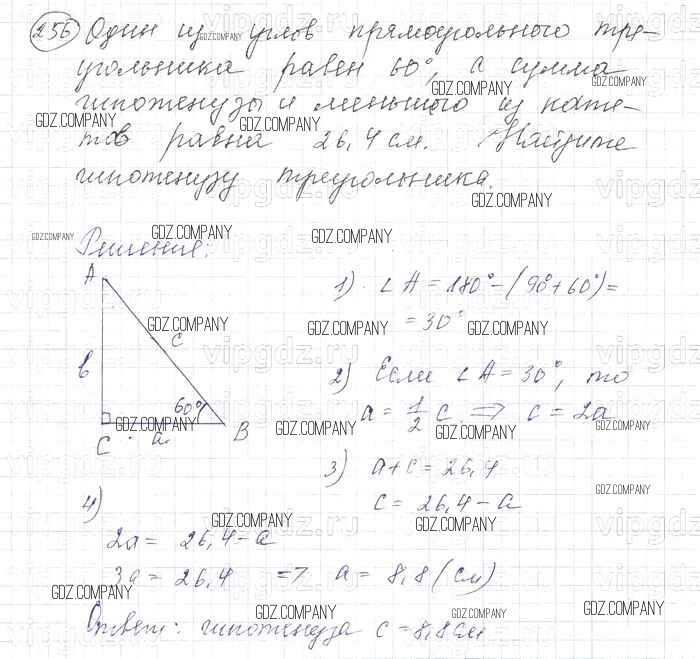 256 Один из углов прямоугольного тре-
угольника равен 60°, а сумма
гипотенузы и меньшего из кате-
тов равна 26,4 см. Найдите
гипотенузу треугольника.
Решение:
A
в
c
60°
C
a
B
1) ∠A = 180° - (90° + 60°) =
= 30°
2) Если ∠A = 30°, то
a = 1/2 c ⇒ c = 2a
3) a + c = 26,4
c = 26,4 - a
4)
2a = 26,4 - a
3a = 26,4 => a = 8,8 (см)
Ответ: гипотенуза c = 8,8 см
GDZ.COMPANY
vipgdz.ru